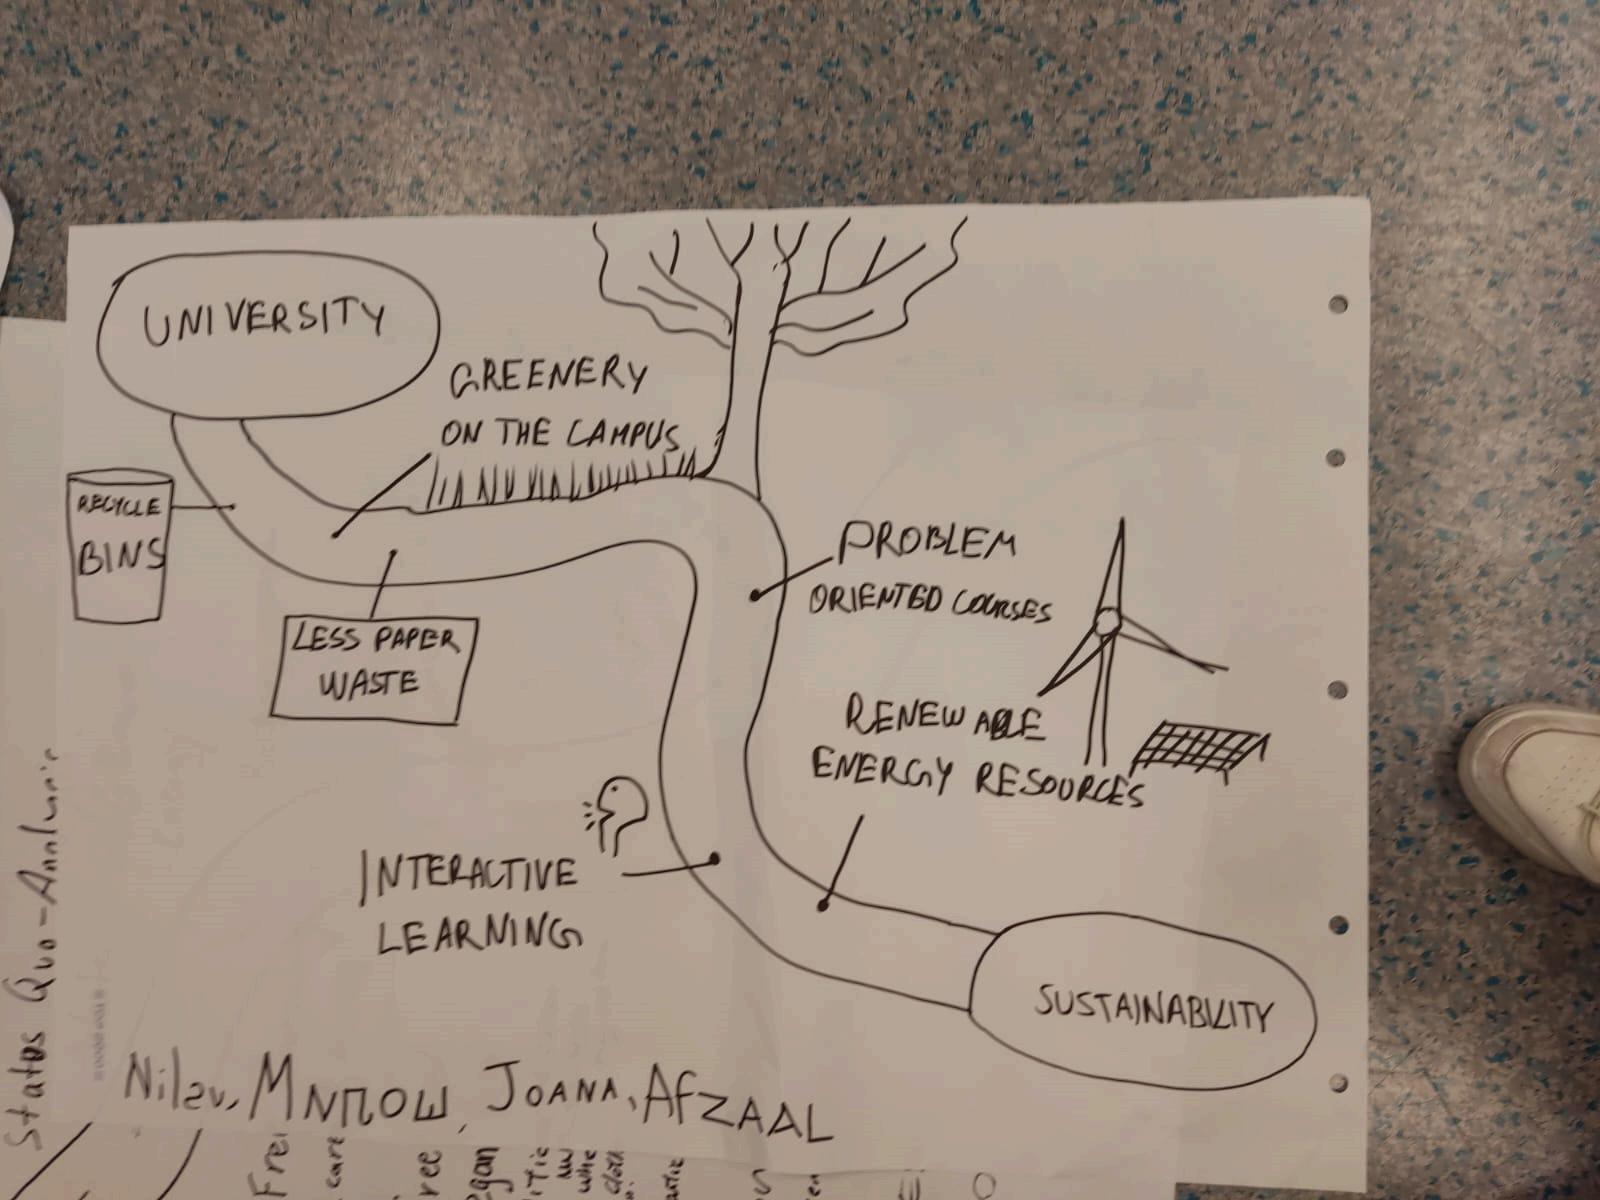 UNIVERSITY
GREENERY
ON THE CAMPUS
RECYCLE
BINS
LESS PAPER
WASTE
PROBLEM
ORIENTED COURSES
RENEWABLE
ENERGY RESOURCES
INTERACTIVE
LEARNING
SUSTAINABILITY
JOANA, AFZAAL
Status Quo-
Frei
care
ree